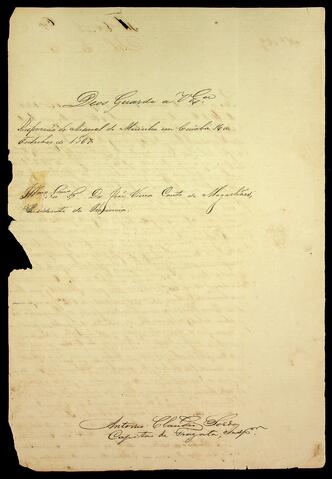 Deos Guarde a V Exª
Inspecção do Arsenal de Marinha em Cuiabá 16 de
Outubro de 1867.
Illmo Exmo Sr Dr José Vieira Couto de Magalhães,
Presidente da Provincia.
Antonio Claudio Soido
Capitão de Fragata, Inspor